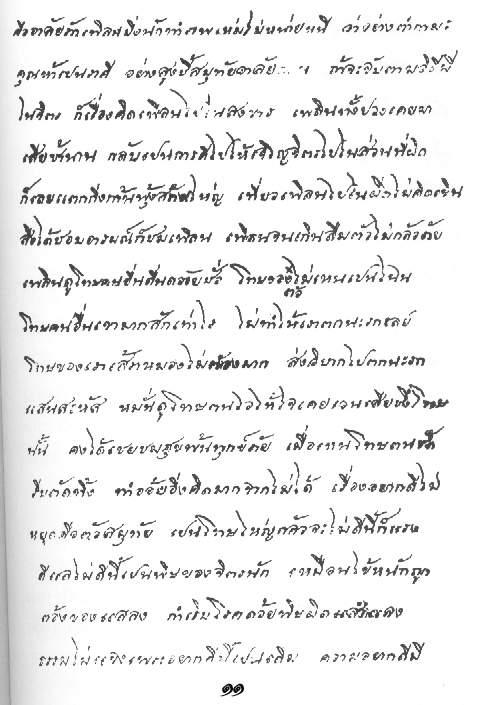 คืออาลัยถ้าเพลินยิ่งนักทำภพใหม่ไม่หน่ายหนี ว่าอย่างต่ำกามะ
คุณห้าเปนราคี อย่างสูงชี้สมุทัยอาลัย ถ้าจะจับตามวิธีมี
ในจิตร ก็เรื่องคิดเพลินไปในสงขาร เพลินทั้งปวงเคยมา
เสียช้านาน กลับเปนการดีไปให้เจริญจิตรไปในส่วนที่ผิด
ก็เลยแตกกิ่งก้านฟุ้งส้านใหญ่ เที่ยวเพลินไปในผิดไม่คิดเขิน
สิ่งใดชอบอารมณ์ก็ชมเพลิน เพลินจนเกินลืมตัวไม่กลัวภัย
เพลินดูโทษคนอื่นดื่นด้วยชั่ว โทษของตัวไม่เหนเปนไฉน
โทษคนอื่นเขามากสักเท่าไร ไม่ทำให้เราตกนะรกเลย
โทษของเราเส้าหมองไม่ต้องมาก ส่งวิบากไปตกนะรก
แสนสะหัส หมั่นดูโทษตนไว้ให้ใจเคยเว้นเสียซึ่งโทษ
นั้น คงได้เชยชมสุขพ้นทุกข์ภัย เมื่อเหนโทษตนชัด
รีบตัดทิ้ง ทำอ้อยอิ่งคิดมากจากไม่ได้ เรื่องอยากดีไม่
หยุดคือตัวสมุทัย เปนโทษใหญ่กลัวจะไม่ดีนี้ก็แรง
ดีแลไม่ดีนี้เปนพิษของจิตรนัก เหมือนไข้หนักถูก
ต้องของแสลง กำเริบโรคด้วยพิษผิดสำแลง
ธรรมไม่แจ้งเพราะอยากดีนี้เปนเดิม ความอยากดีมี
๑๑